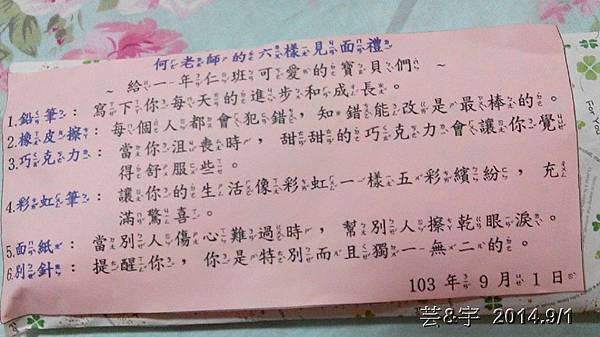 何老師的六樣見面禮
~ 給一年仁班可愛的寶貝們 ~
1.鉛筆：寫下你每天的進步和成長。
2.橡皮擦：每個人都會犯錯，知錯能改是最棒的。
3.巧克力：當你沮喪時，甜甜的巧克力會讓你覺
得舒服些。
4.彩虹筆：讓你的生活像彩虹一樣五彩繽紛，充
滿驚喜。
5.面紙：當別人傷心難過時，幫別人擦乾眼淚。
6.別針：提醒你，你是特別而且獨一無二的。
103 年 9 月 1 日
芸&宇 2014.9/1